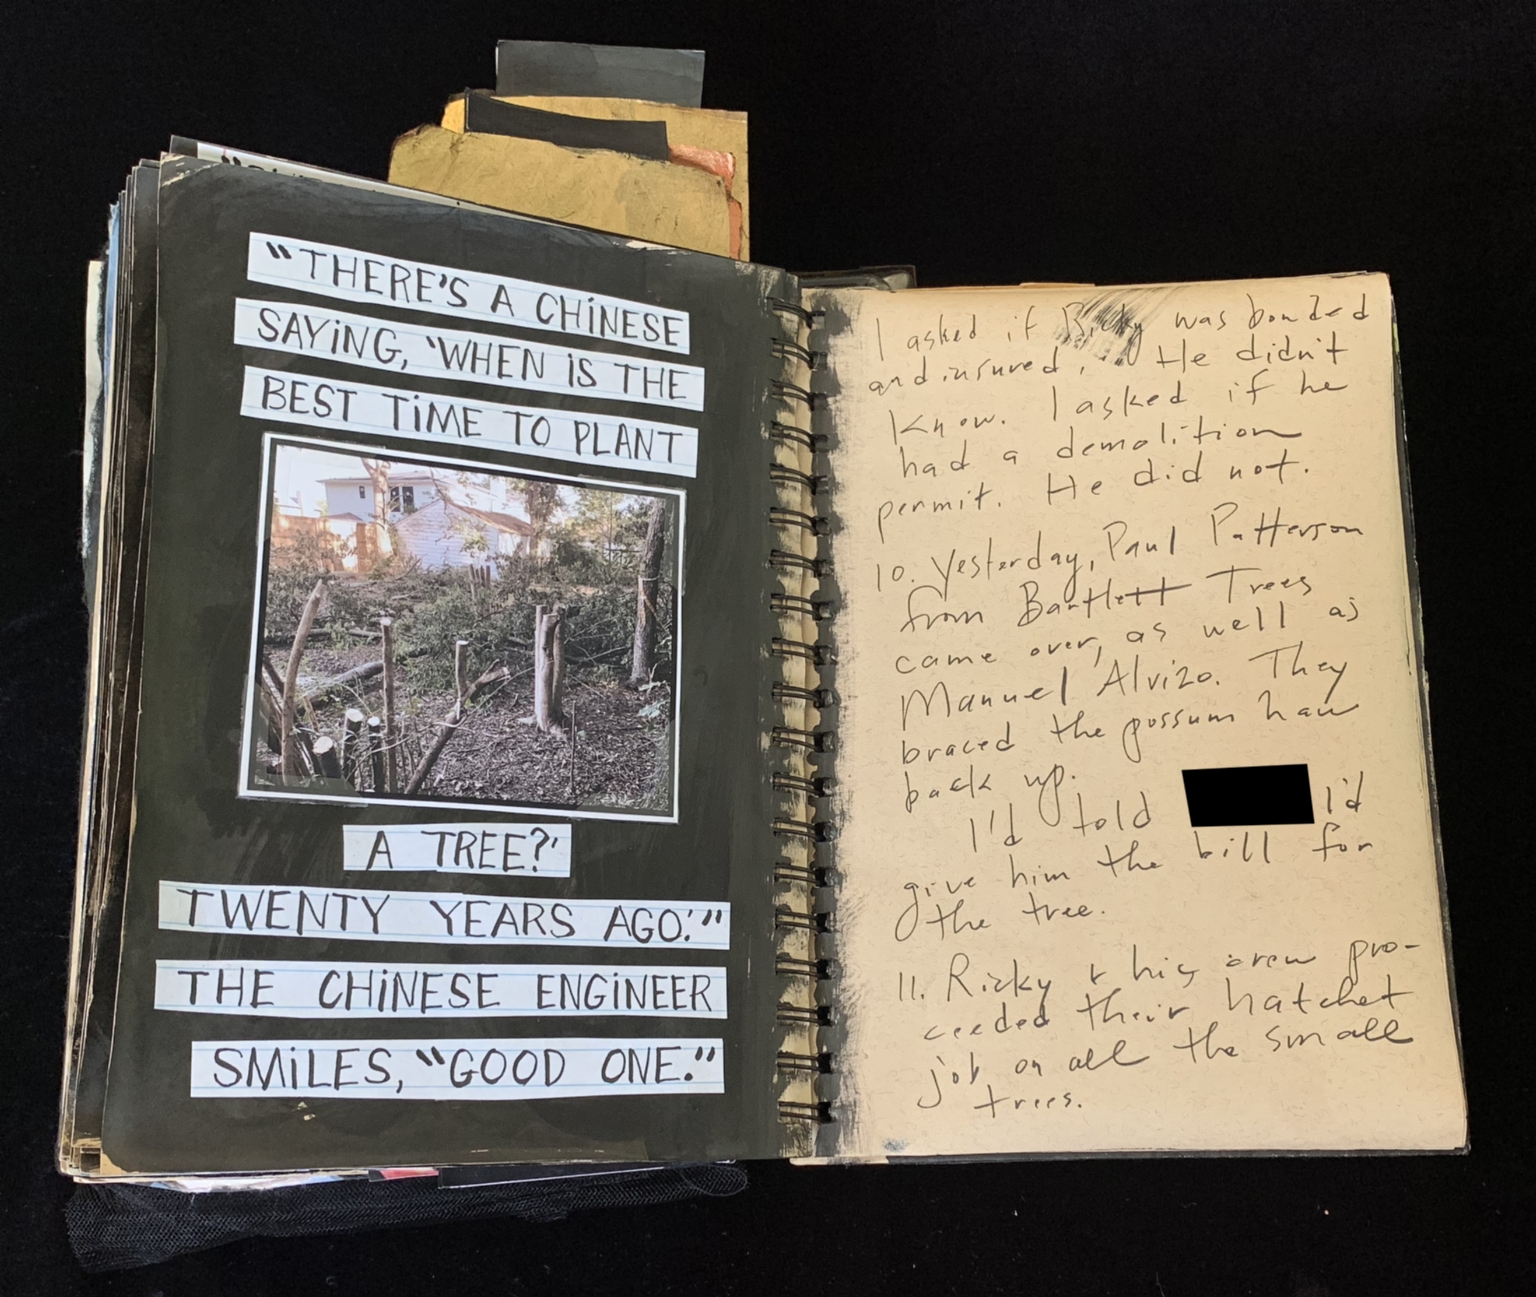 "THERE'S A CHINESE
SAYING, 'WHEN IS THE
BEST TIME TO PLANT
A TREE?'
TWENTY YEARS AGO.'"
THE CHINESE ENGINEER
SMILES, "GOOD ONE."
I asked if Ricky was bonded
and insured. He didn't
know. I asked if he
had a demolition
permit. He did not.
10. Yesterday, Paul Patterson
from Bartlett Trees
came over, as well as
Manuel Alvizo. They
braced the possum haw
back up.
I'd told I'd
give him the bill for
the tree.
11. Ricky & his crew pro-
ceeded their hatchet
job on all the small
trees.